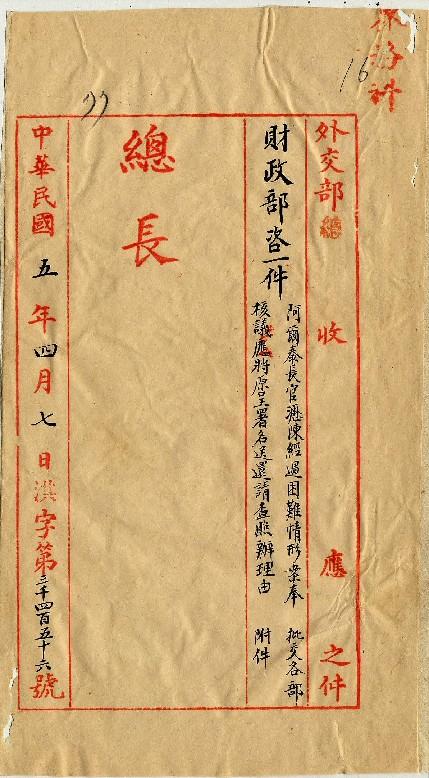 16
外交部總收應之件
財政部咨一件
阿爾泰長官瀝陳經過困難情形案奉 批交各部
核議應將原呈署名送還請查照辦理由 附件
總長
中華民國五年四月七日洪字第三千四百五十六號